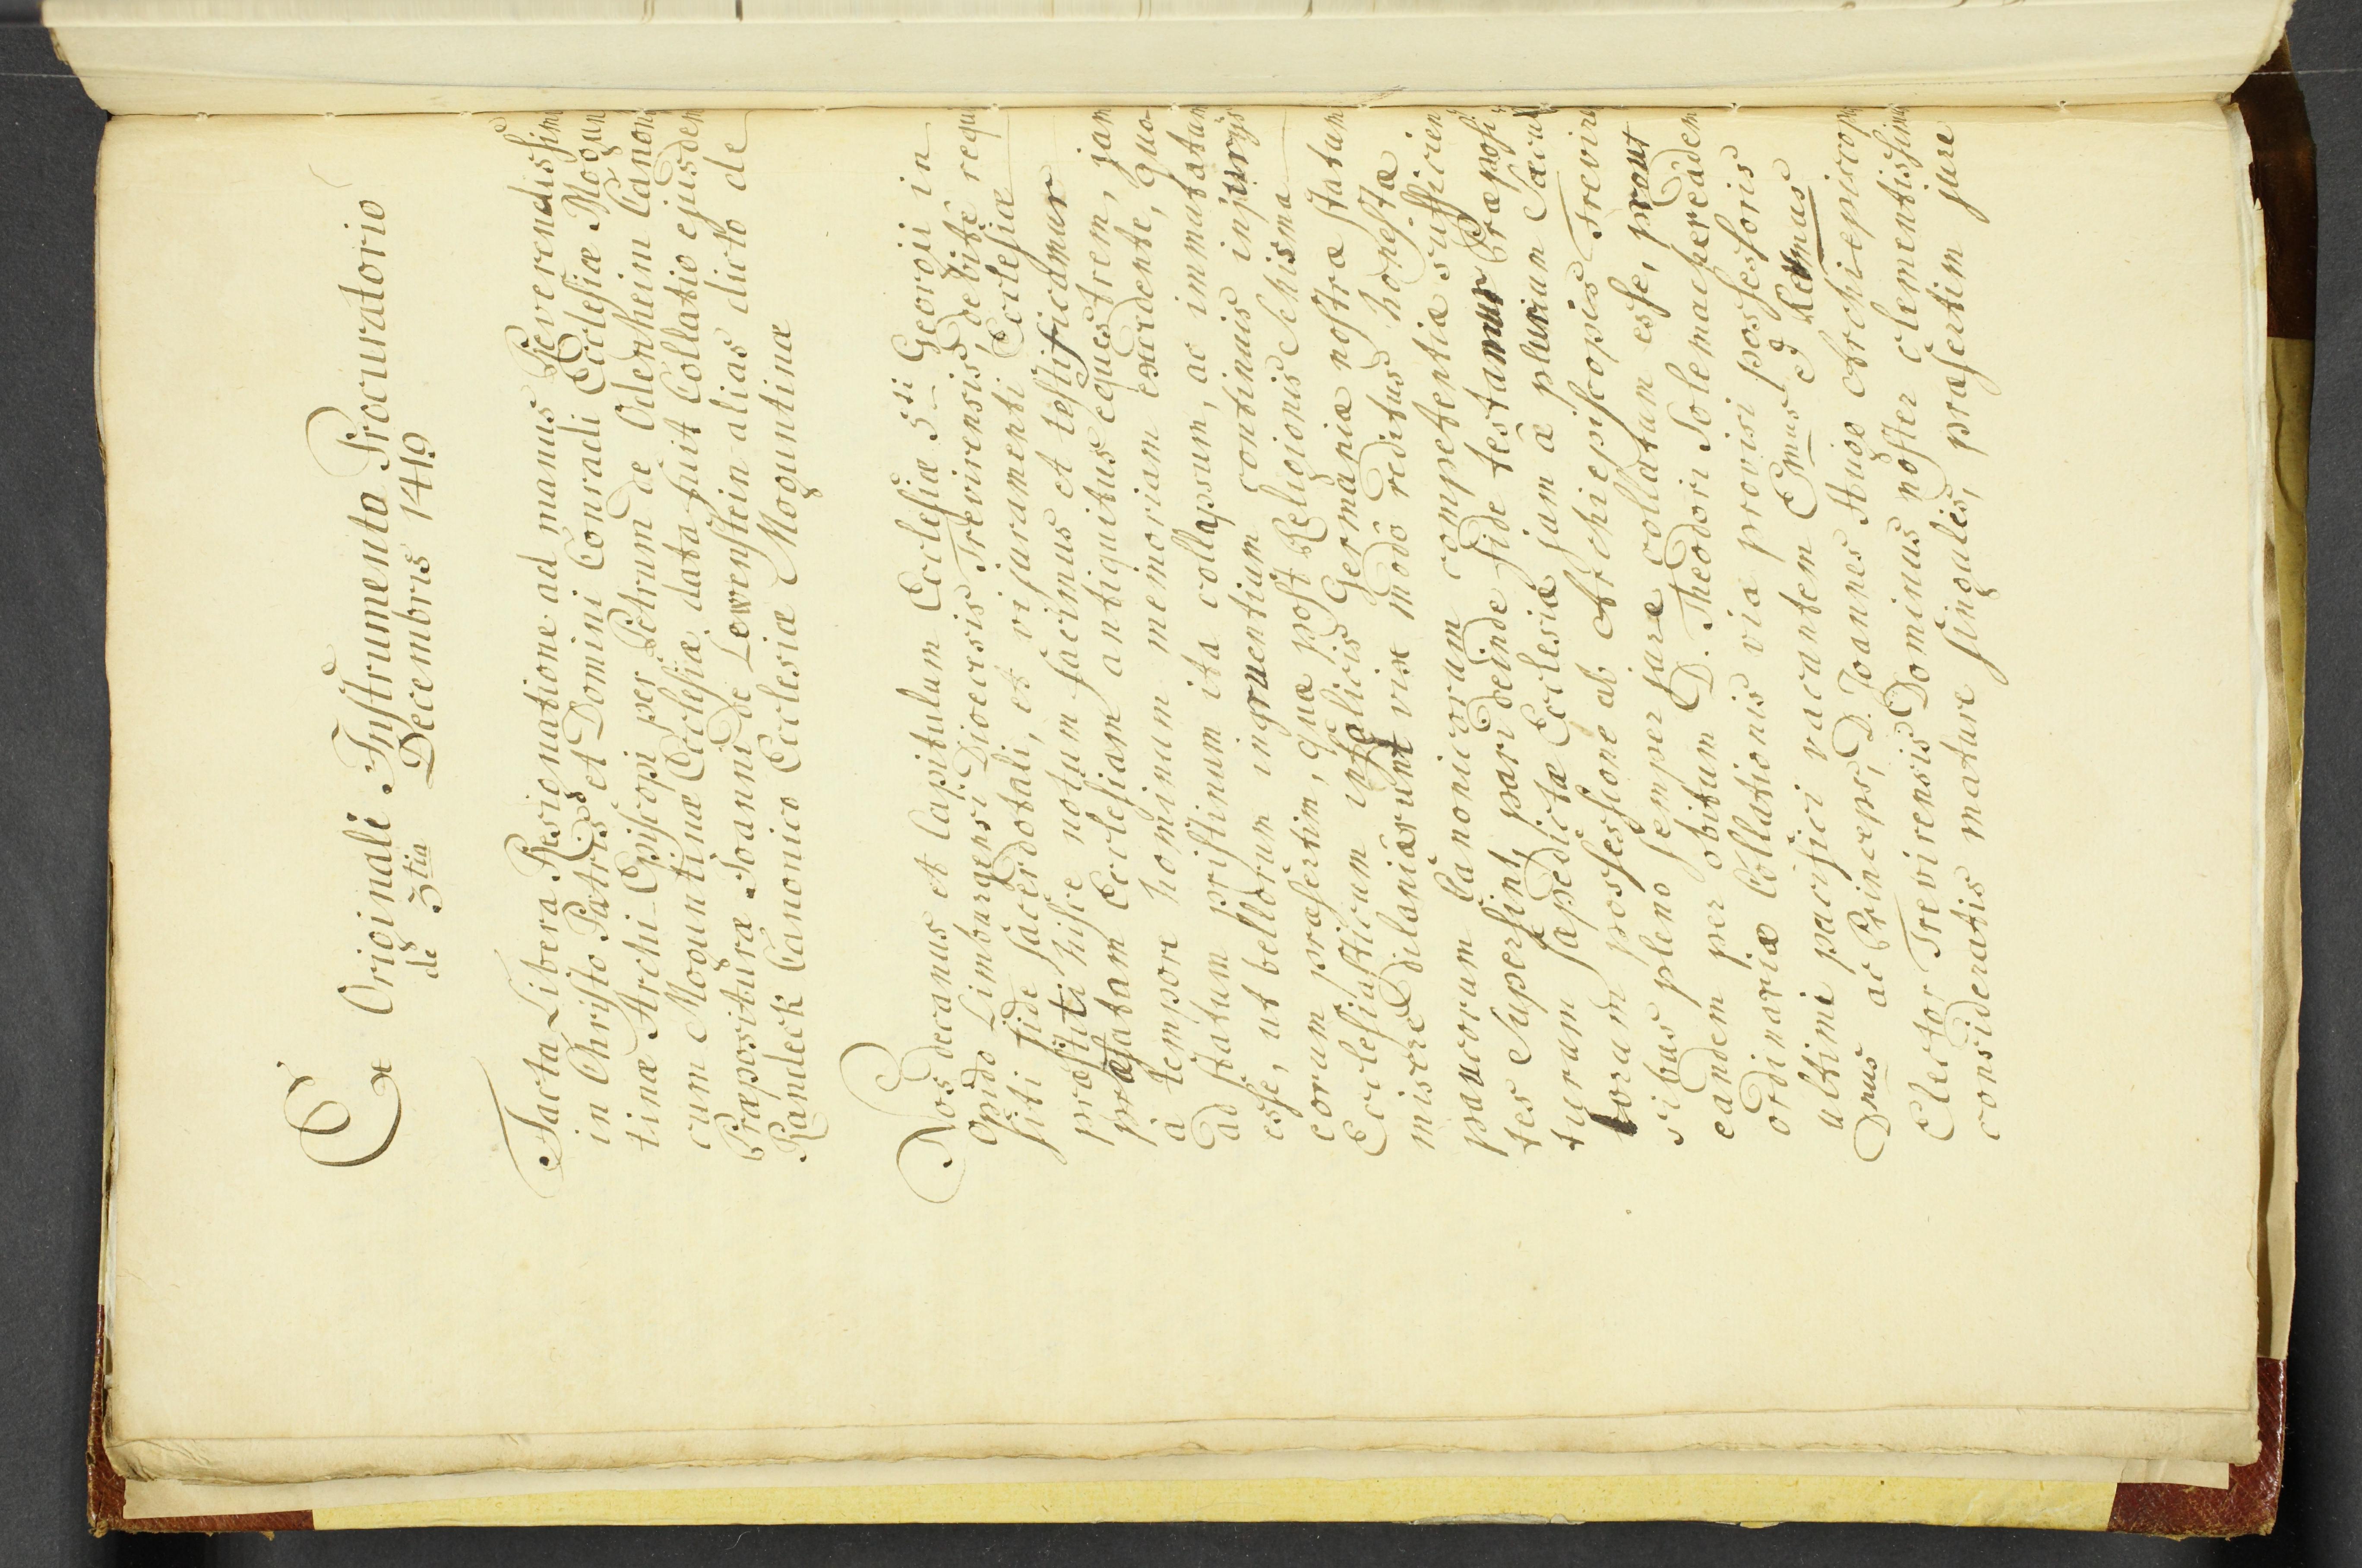 Ex Originali Instrumento Procuratorio
de 3tia Decembris 1419
Facta Libera Resignatione ad manus Reverendissimi
in Christo Patris et Domini Conradi Ecclesiæ Mogun
tinæ Archi-Episcopi per Petrum de Udenheim Canoni
cum Moguntinæ Ecclesiæ data fuit Collatio ejusdem
Præpositurae Joanni de Lewenstein alias dicto de
Randeck Canonico Ecclesiæ Moguntinæ
Nos decanus et Capitulum Ecclesiæ Sti Georgii in
opido Limburgensi Dioecesis Trevirensis, debitè requi
siti fide sacerdotali, et vi juramenti Ecclesiæ
præstiti hisce notum facimus et testificamur
præfatam Ecclesiam antiquitus equestrem, jam
à tempore hominum memoriam excedente, quo
ad statum pristinum ita collapsum, ac immutatum
esse, ut bellorum ingruentium continuis injurijs
eorum præsertim, quæ post Religionis Schisma
Ecclesiasticum infelicis Germaniæ nostræ statum
miserè dilaniârunt vix modò reditus honestæ
paucorum Canonicorum competentiæ sufficien
tes supersint, pari deinde fide testamur Præposi
turam sæpedictæ Ecclesiæ jam à plurium Sæcu
lorum possessione ab Archiepiscopis Treviren
sibus pleno semper jure collatam esse, prout
eandem per obitum D. Theodori Solemacher eâdem
ordinariæ Collationis via provisi possessoris
ultimi pacifici vacantem Emus et Rdmus
Dnus ac Princeps, D. Joannes Hugo Archiepiscopus
Elector Trevirensis Dominus noster clementissimus
consideratis mature singulis, præsertim jure